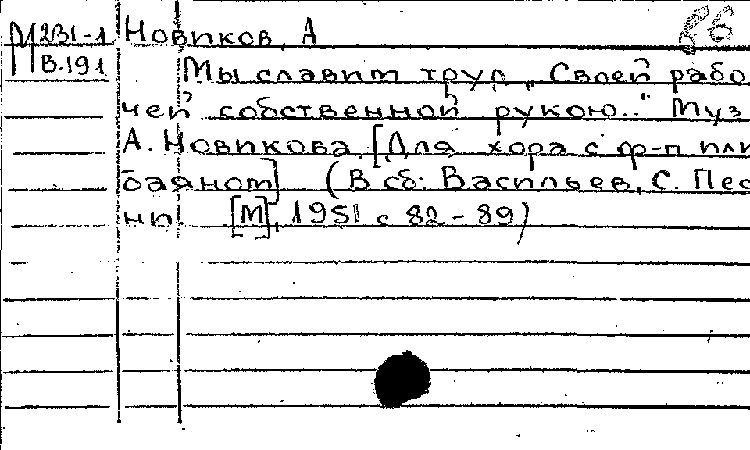 М 231-1 Новиков, А 86
В.191 Мы славим труд „Своей рабо
чей собственной рукою.." Муз
А. Новикова. [Для хора с ф-п или
баяном] (В сб: Васильев, С. Пес
ни [М], 1951 с 82-89)